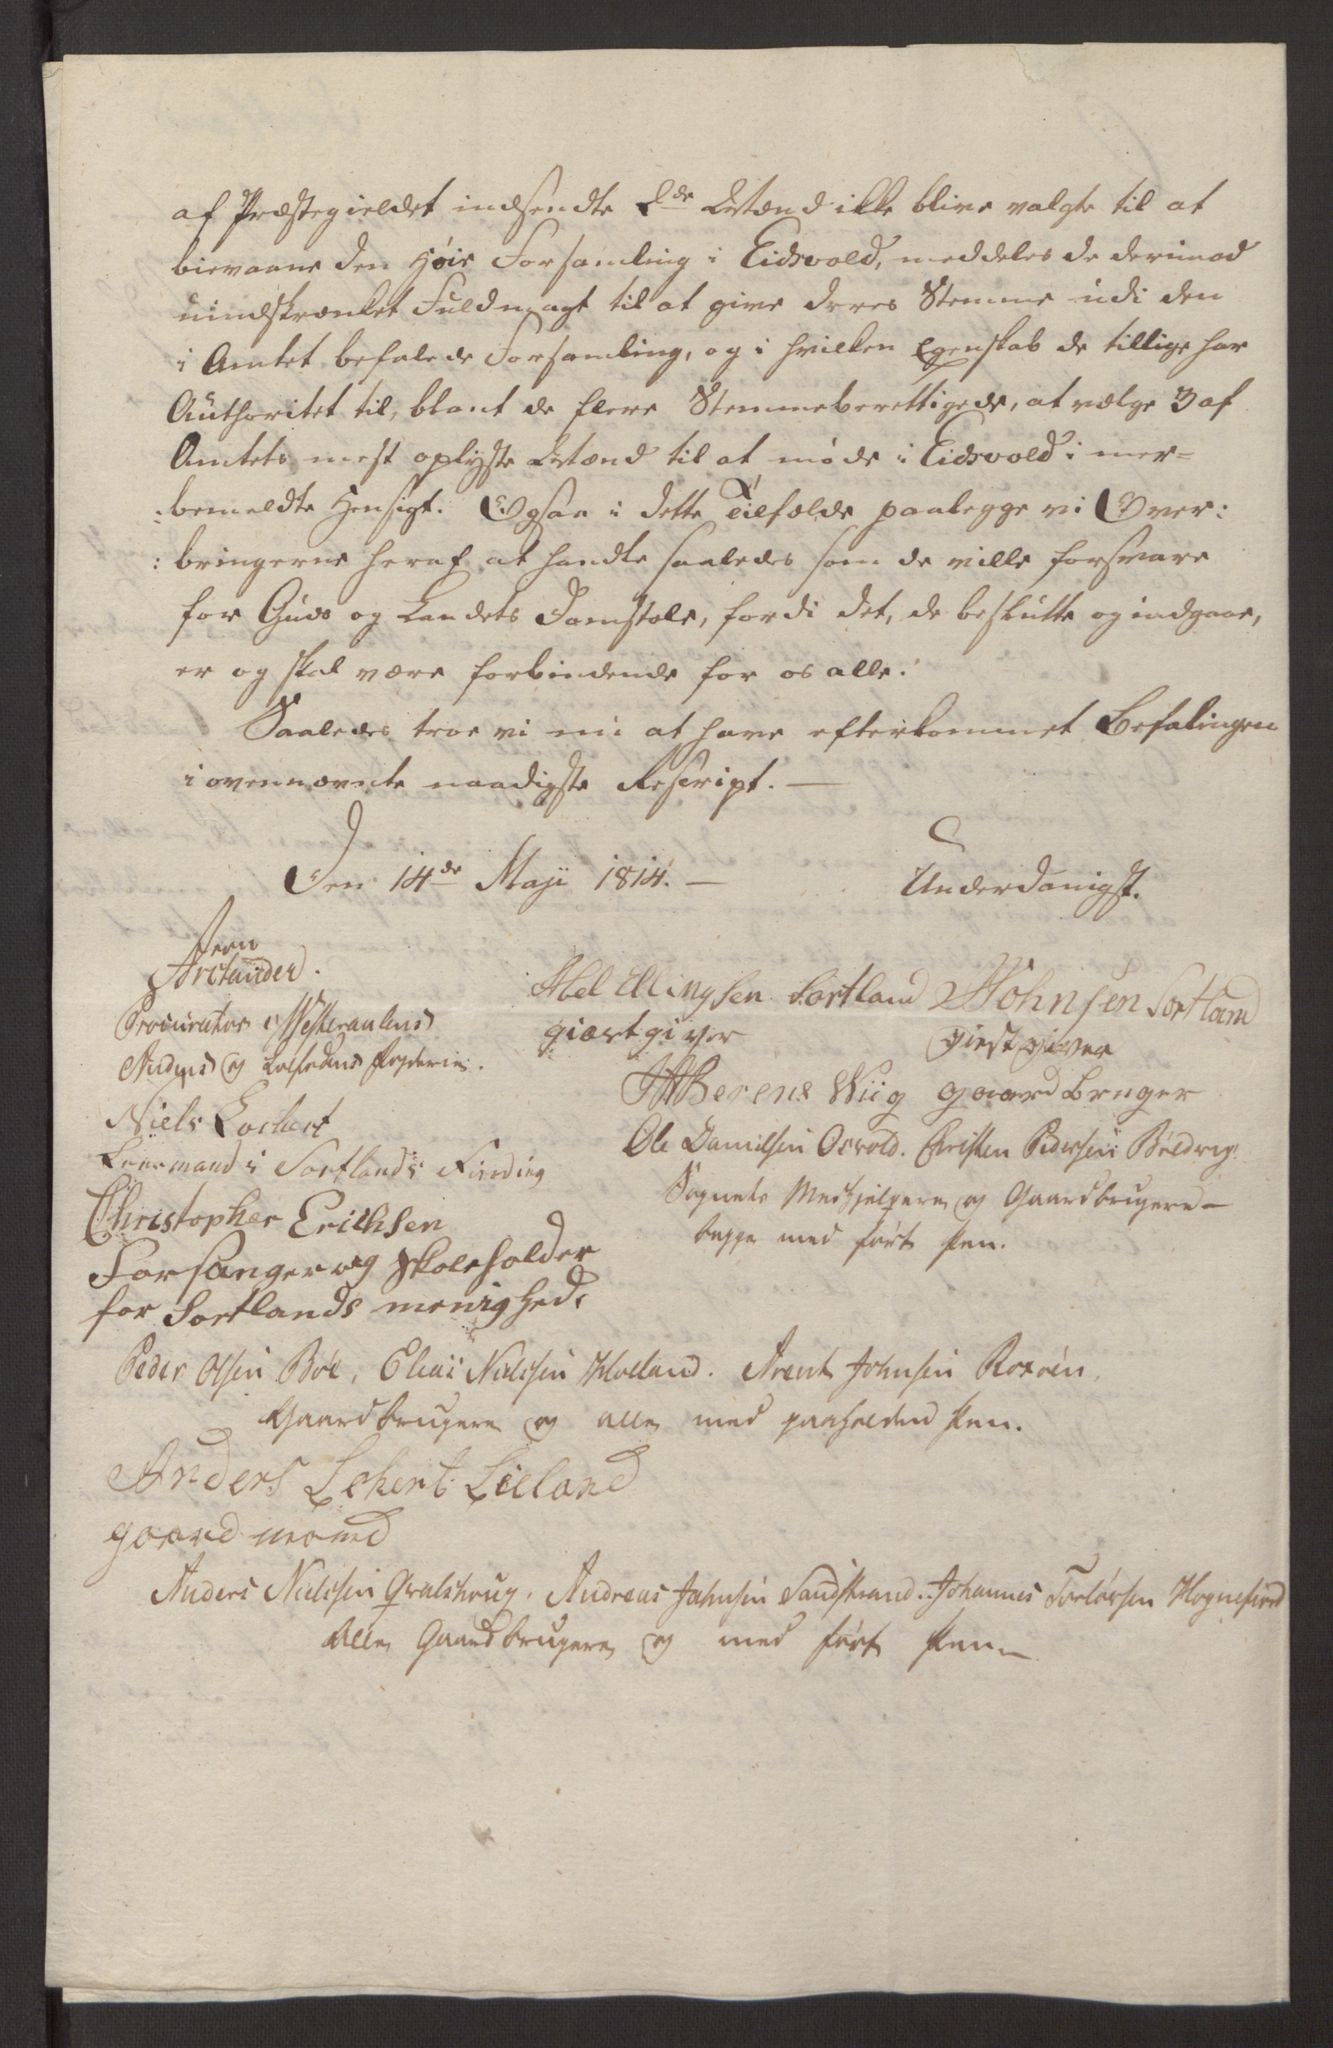 af Præstegieldet indsendte 2de Mænd ikke blive valgte til at
bievaane den Høie Forsamling i Eidsvold, meddeles de derimod
uindskrænket Fuldmagt til at give deres Stemme udi den
i Amtet befalede Forsamling, og i hvilken Egenskab de tillige har
Authoritet til, blant de flere Stemmeberettigede, at vælge 3 af
Amtets mest oplyste Mænd til at møde i Eidsvold i mer=
:bemeldte Hensigt. Ogsaa i dette Tilfælde paalegge vi Over:
:bringerne heraf at handle saaledes som de ville forsvare
for Guds og Landets Domstole, fordi det, de beslutte og indgaae,
er og skal være forbindende for os alle.
Saaledes troe vi nu at have efterkommet Befalingen
i ovennævnte naadigste Rescript. —
Den 14de Maji 1814. —
Underdanigst.
Arctander.
Procurator i Westeraalens
Andenes og Lofodens Fogderie.
Niels Lochert
Leensmand i Sortlands Fierding
Christopher Erichsen
Forsanger og Skoleholder
for Sortlands menighed.
Abel Ellingsen Sortland
giæstgiver
Johnsen Sortland
giestgiver
Berens Wiig gaardbruger
Ole Danielsen Osvold. Christen Pedersen Bredvig.
Sognets Medhjelpere og Gaardbrugere —
begge med ført Pen.
Peder Olsen Böe, Elias Nielsen Holland. Arent Johnsen Roköen,
Gaardbrugere og alle med paaholden Pen.
Anders Lokert Lieland
gaard mand
Anders Nielsen Qvalshoug. Andreas Johnsen Sandstrand. Johannes Torlevsen Hognfiord
Alle Gaardbrugere og med ført Pen —